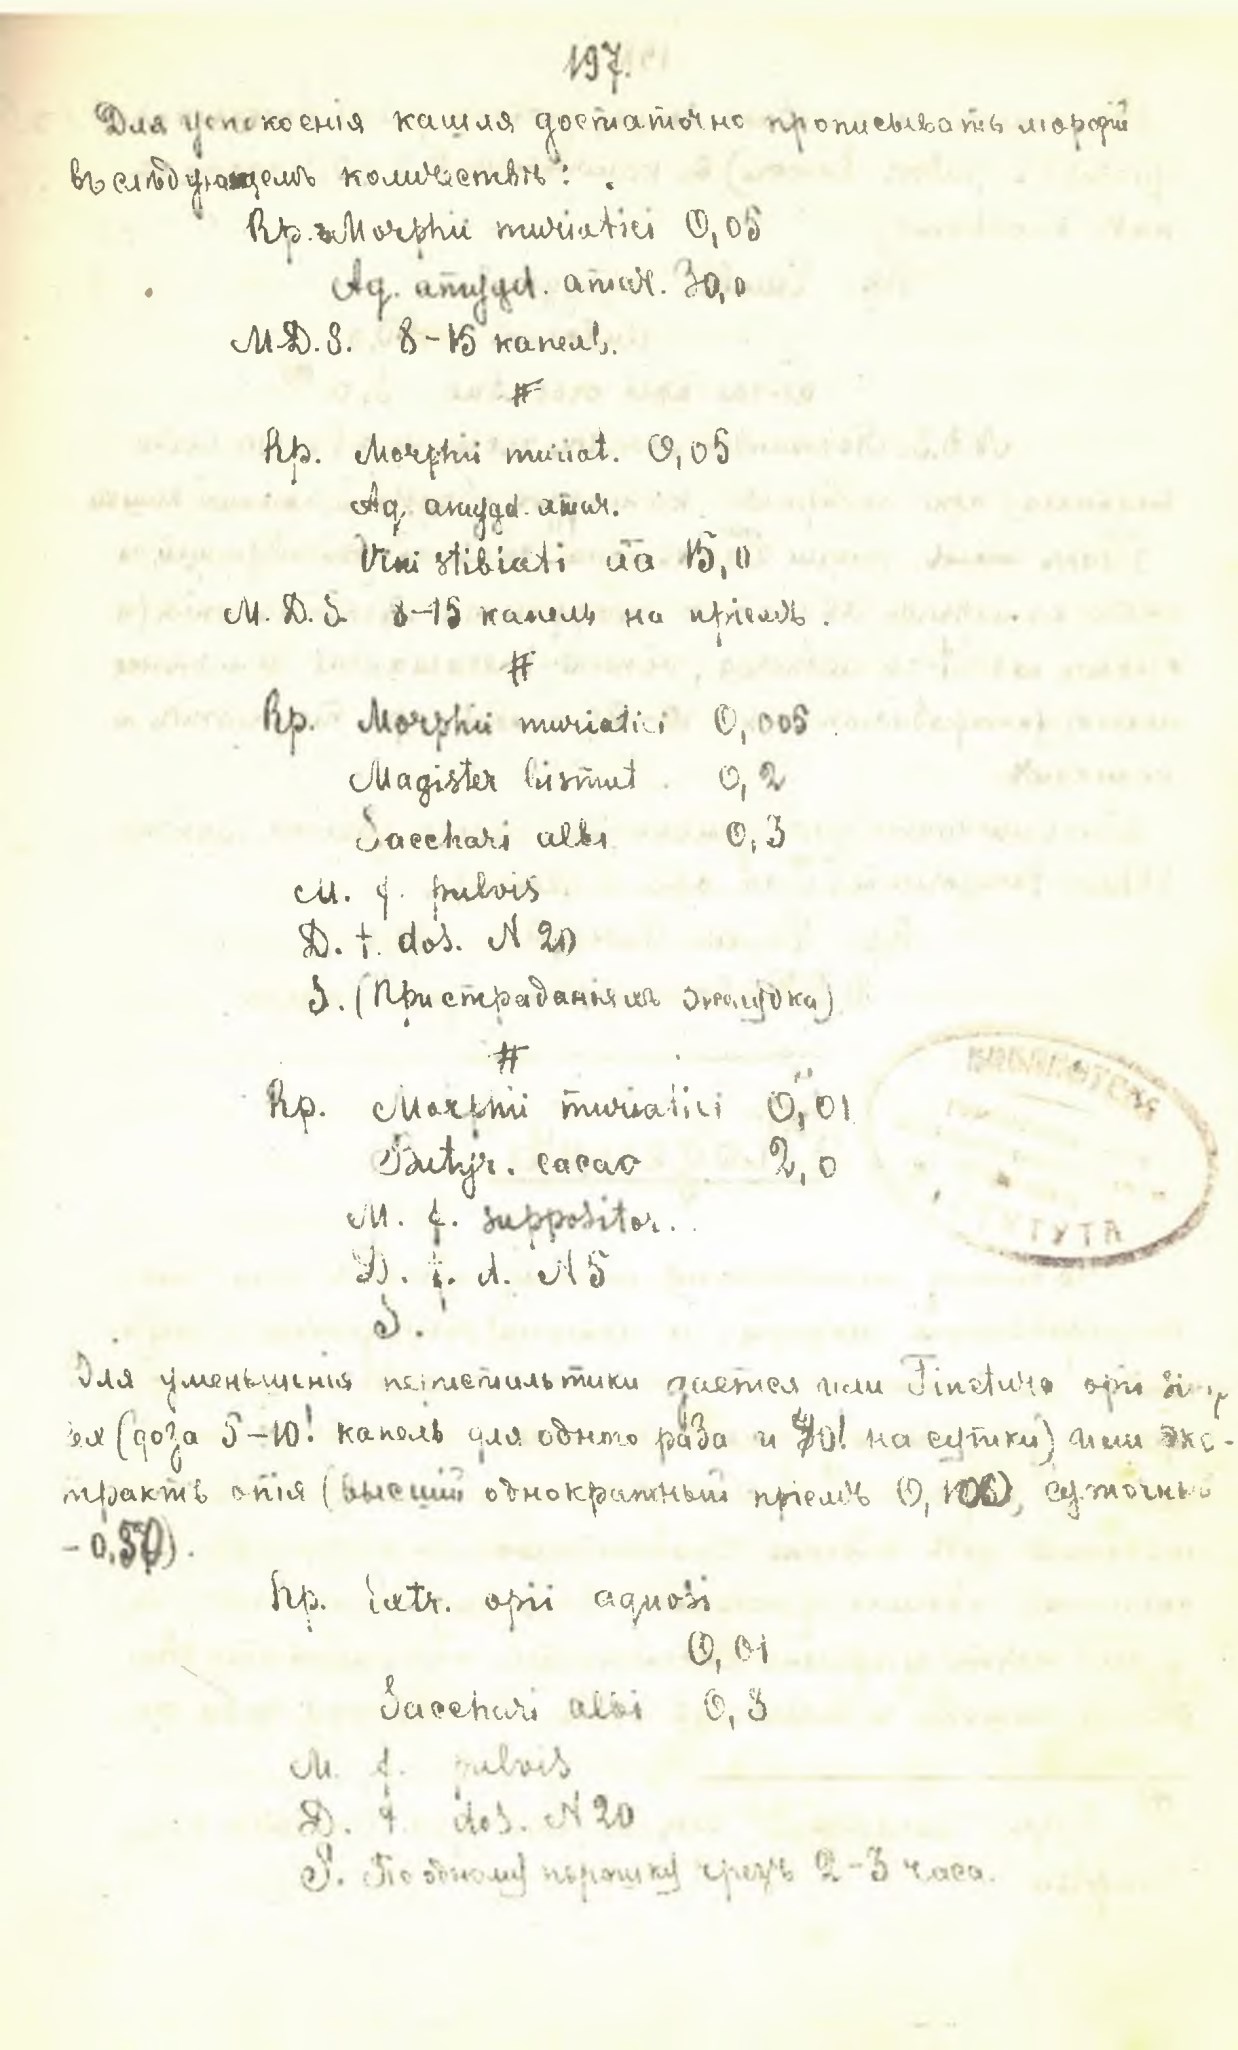 197.
Для успокоенія кашля достаточно прописывать морфій
въ слѣдующемъ количествѣ:
Rp. Morphii muriatici 0,05
Aq. amygd. amar. 30,0
M.D.S. 8-15 капель.
#
Rp. Morphii muriat. 0,05
Aq. amygd. amar.
Vini stibiati āā 15,0
M.D.S. 8-15 капель на пріемъ.
#
Rp. Morphii muriatici 0,005
Magister bismut. 0,2
Sacchari albi 0,3
M. f. pulvis
D. t. dos. N 20
S. (При страданіяхъ желудка)
#
Rp. Morphii muriatici 0,01
Butyr. cacao 2,0
M. f. suppositor.
D. t. d. N 5
S.
БИБЛИОТЕКА
Для уменьшенія перистальтики дается или Tinctura opii
(доза 5-10! капель для одного раза и на сутки) или экс-
трактъ опія (высшій однократный пріемъ суточный
Rp. Extr. opii aquosi
0,01
Sacchari albi 0,3
M. f. pulvis
D. t. dos. N 20
S. По одному порошку чрезъ 2-3 часа.